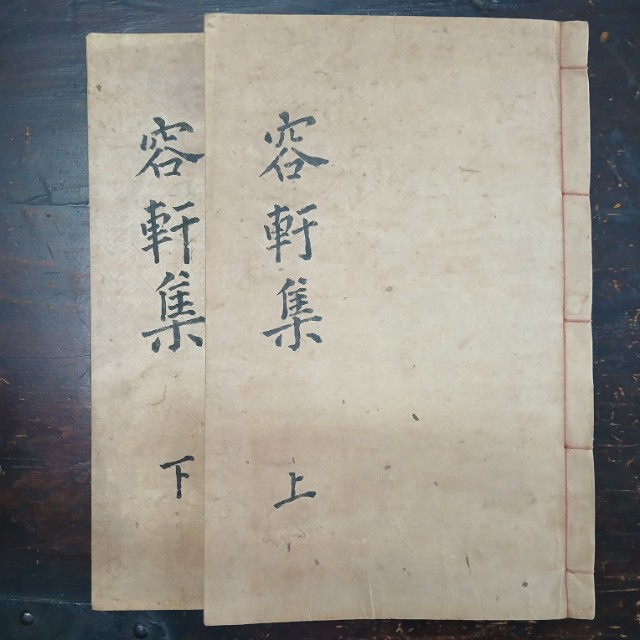 容軒集
上
容軒集
下